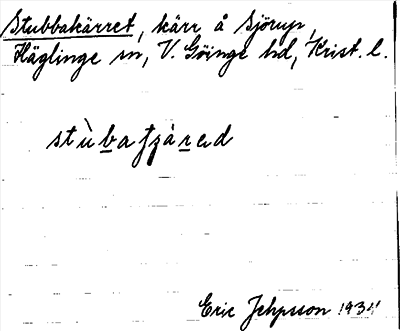 Stubbakärret, kärr å Sjörup,
Häglinge sn, V. Göinge hd, Krist. l.
stùbaʃjàred
Eric Jehpsson 1934